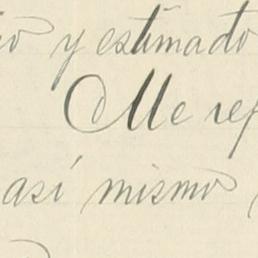 y estimado
Me
así mismo